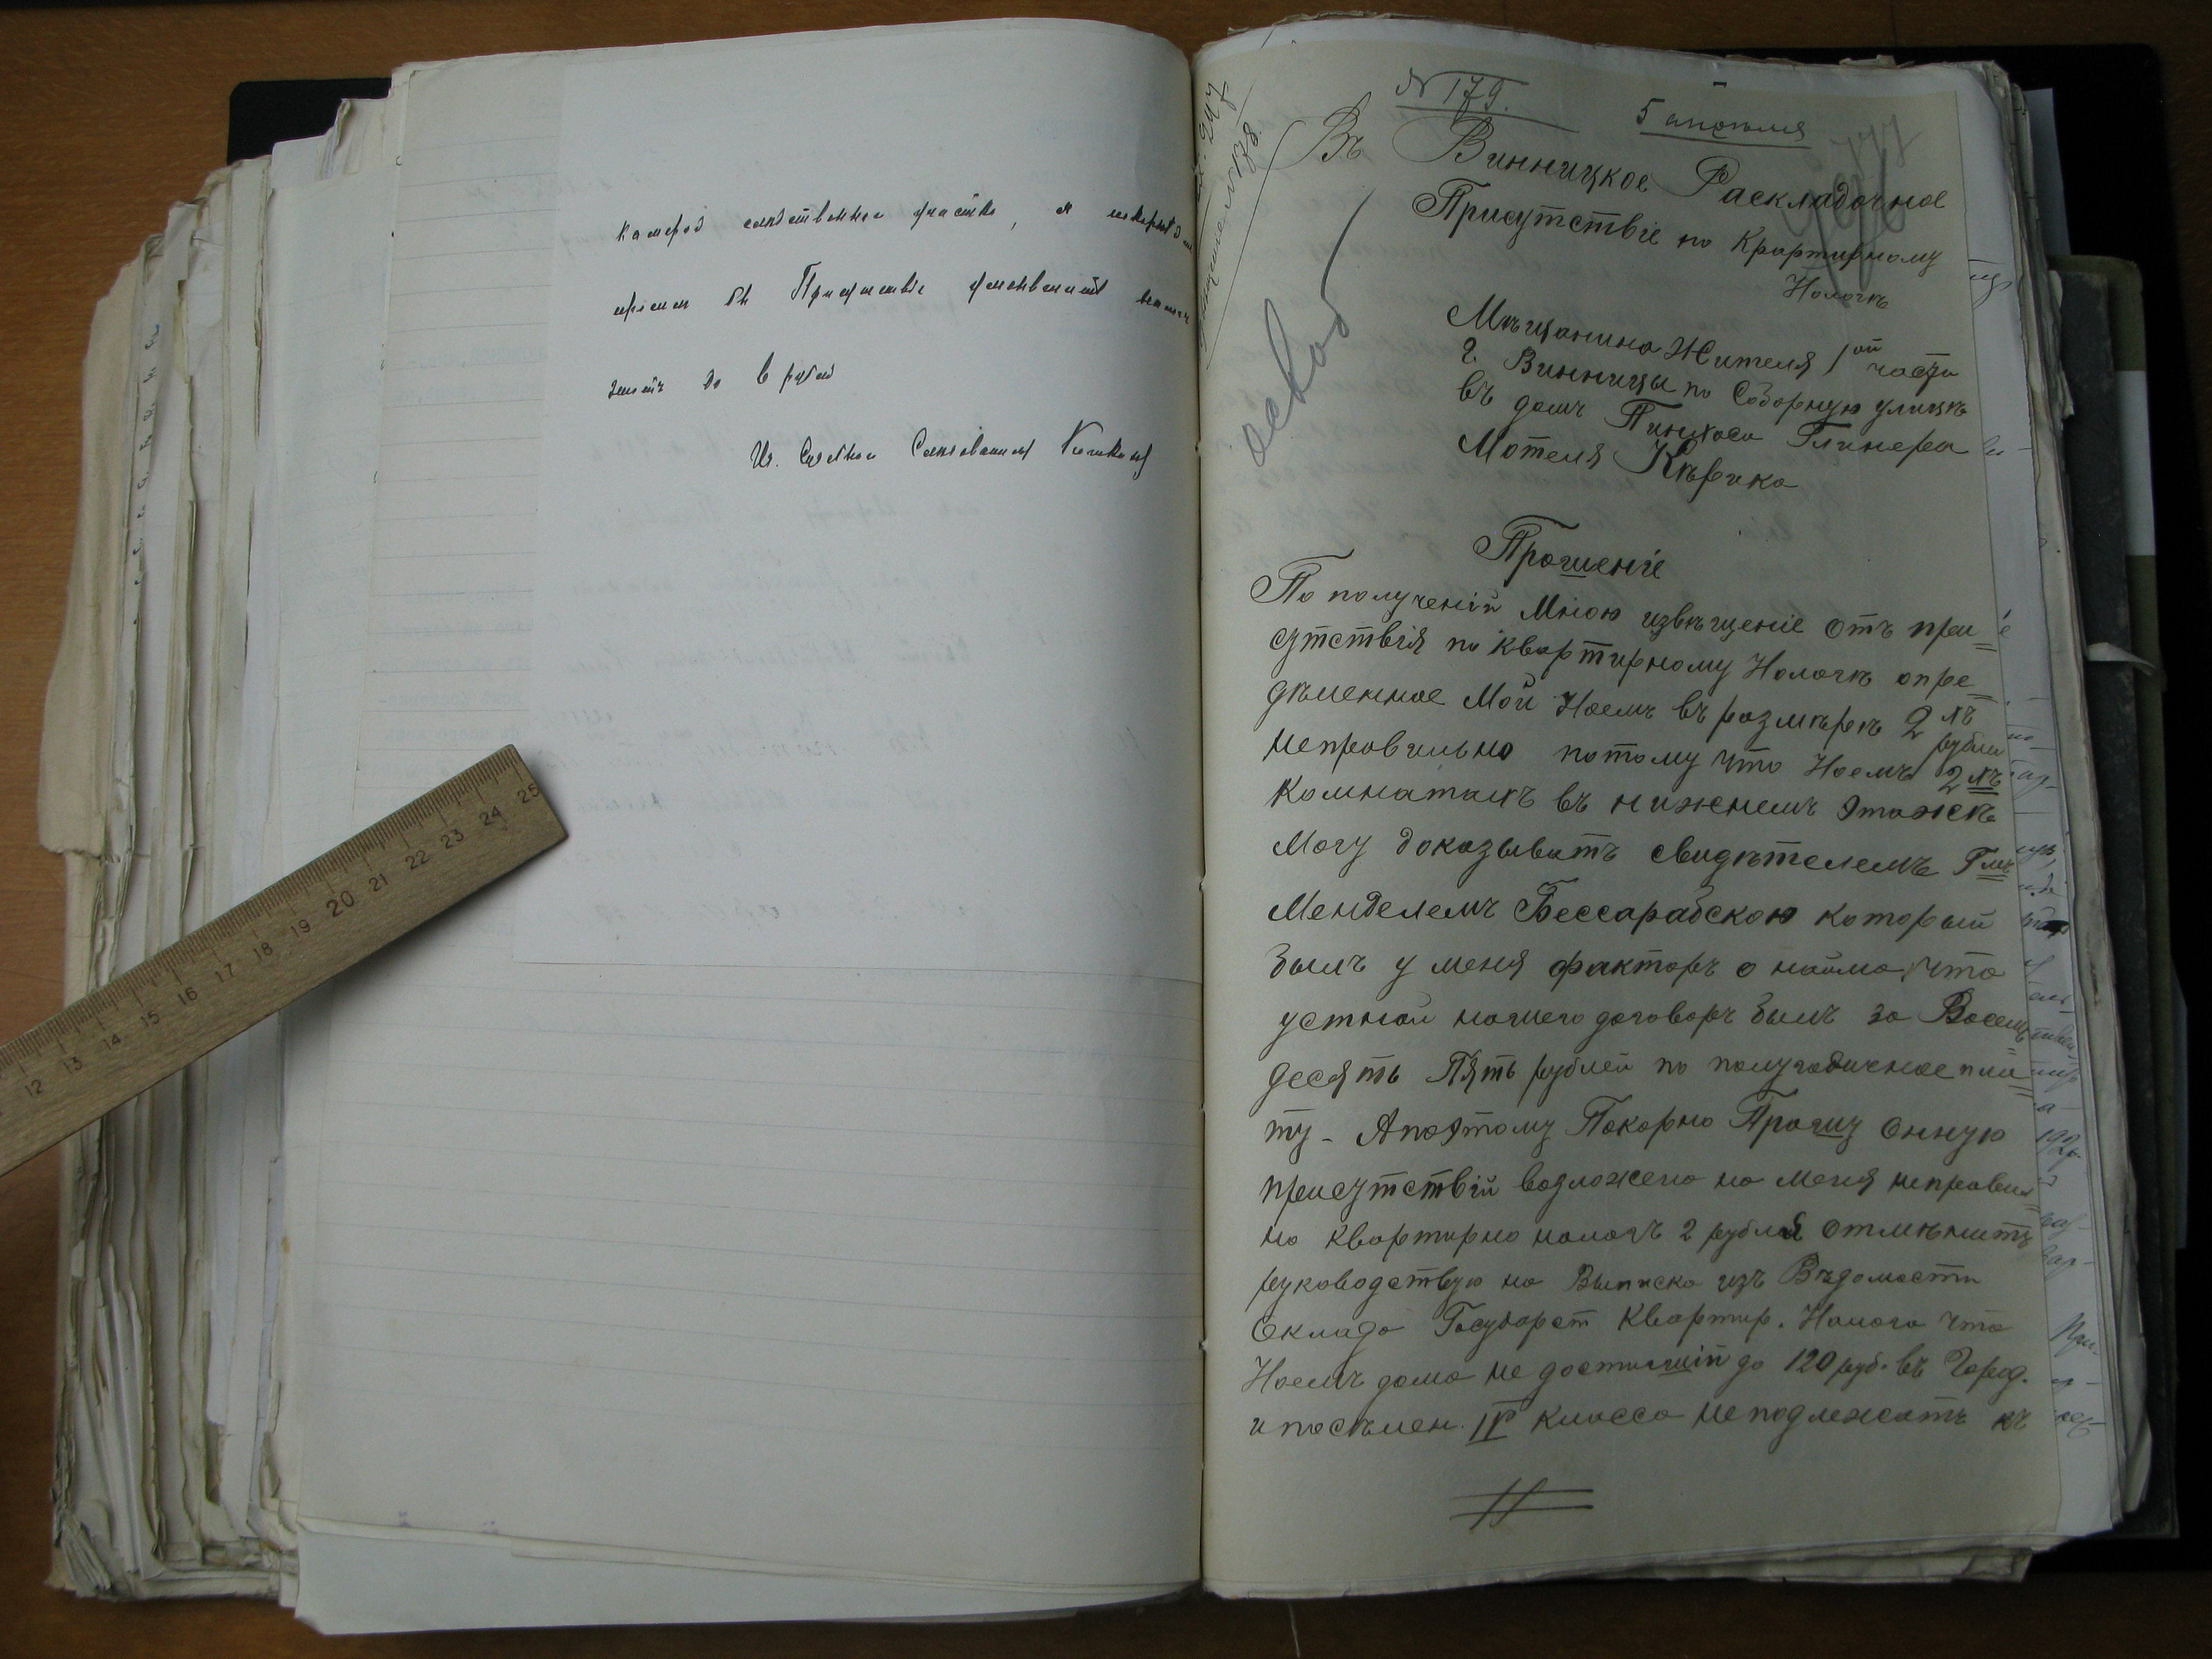 камерой слѣдственнаго участка, я покорнѣйше
прошу въ Присутствіе уменьшить
до 6 рублей
И. Судебнаго Слѣдователя
N 179.
5 апрѣля
177
Въ Винницкое Раскладочное
Присутствіе по Квартирному
Налогѣ
освоб
Мѣщанина Жителя 1ой части
г. Винницы по Соборную улицѣ
въ домъ Пинхаса Глинера
Мотеля Кѣрика
Прошеніе
По полученій Мною извѣщеніе отъ при=
сутствія по квартирному Налогѣ опре=
дѣленное Мой Наемъ въ размѣрѣ 2хъ рубли
неправильно потому что Наемъ 2хъ
Комнатамъ въ нижнемъ этажѣ
Могу доказывать свидѣтелемъ Гмъ
Менделемъ Бессарабскою который
былъ у меня факторъ о найма что
устной нашего договоръ былъ за Восемь
десять Пять рублей по полугодичное пла=
ту - А поэтому Покорно Прошу Онную
присутствій возложено на меня неправил=
но квартирно налогъ 2 рубля отмѣнить
руководствую на Выписка изъ Вѣдомости
Оклада Государст Квартир. Налога что
Наемъ дома не достигшій до 120 руб. въ Город.
и поселен. IV класса не подлежать къ